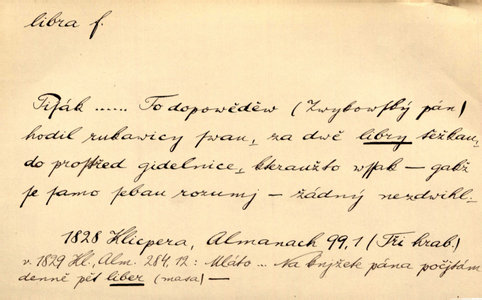 libra f.
Piſák ...... To dopowěděw (Zwykowſký pán)
hodil rukawicy swau, za dwě libry těžkau,
do proſtřed gidelnice, kteraužto wſſak — gakž
se samo sebau rozumj — žádný nezdwihl.
1828 Klicpera, Almanach 99,1 (Tři hrab.)
v. 1829 Kl., Alm. 284, 12: Mláto ... Na knjžek pána počjtám
denně pět liber (masa) —